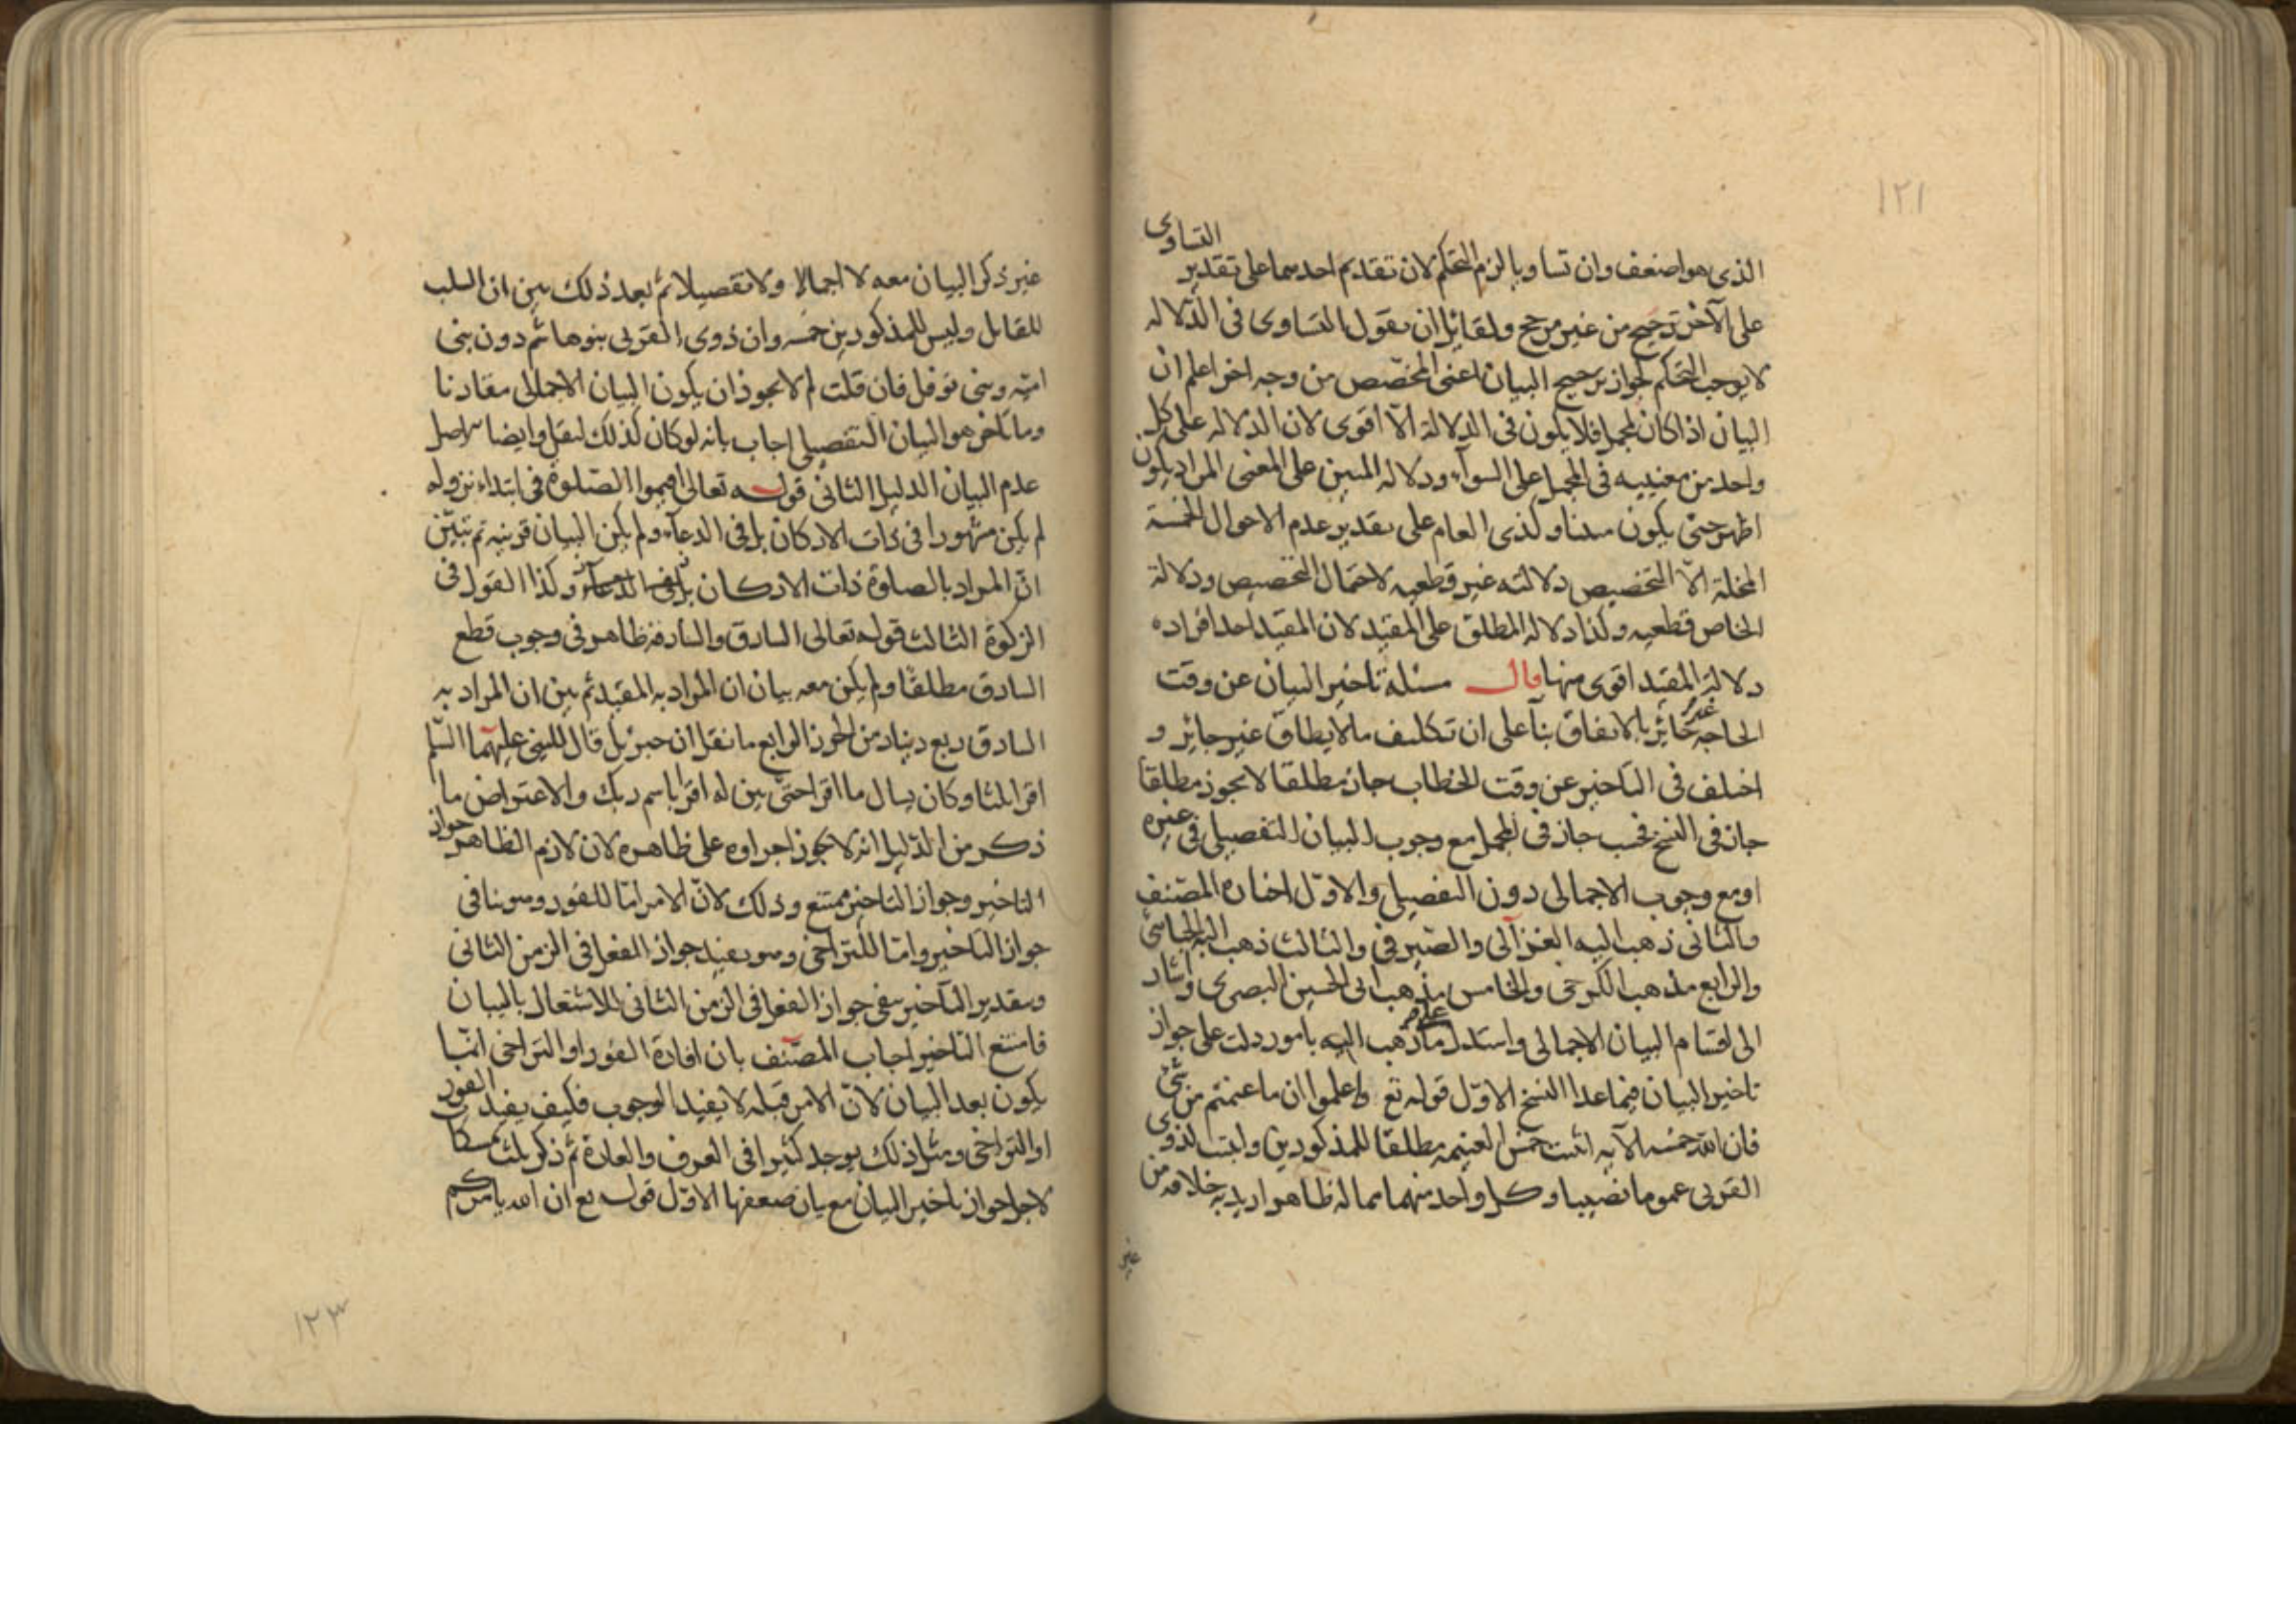 ١٢١
الذى هو اضعف وان تساويا لزم التحكم لان تقديم احدهما على تقدير التساوى
على الآخر ترجيح من غير مرجح ولقائل ان يقول التساوى فى الدلاله
لا يوجب التحكم لجواز ترجيح البيان اعنى المخصص من وجه اخر اعلم ان
البيان اذا كان لمجمل فلا يكون فى الدلالة الا اقوى لان الدلاله على كل
واحد من معنييه فى المجمل على السوآء ودلاله المبين على المعنى المراد يكون
اظهر حتى يكون مبينا وكذى العام على تقدير عدم الاحوال الخمسة
المخلة الا التخصيص دلالته غير قطعيه لاحتمال التخصيص ودلالة
الخاص قطعيه وكذا دلاله المطلق على المقيد لان المقيد احد افراده
دلالة المقيد اقوى منها قال مسئلة تاخير البيان عن وقت
الحاجه غير جائز بالاتفاق بنآ على ان تكليف ما لا يطاق غير جائز و
اختلف فى التاخير عن وقت الخطاب جاز مطلقا لا يجوز مطلقا
جاز فى النسخ فحسب جاز فى المجمل مع وجوب البيان التفصيلى فى غيره
او مع وجوب الاجمالى دون التفصيلى والاول اختاره المصنف
والثانى ذهب اليه الغزآلى والصيرفى والثالث ذهب اليه الجبائى
والرابع مذهب الكرخى والخامس مذهب ابى الحسين البصرى واشار
الى اقسام البيان الاجمالى واستدل على ما ذهب اليه بامور دلت على جواز
تاخير البيان فيما عدا النسخ الاول قوله تع واعلموا ان ما غنمتم من شئ
فان لله خمسه الآيه اثبت خمس الغنيمه مطلقا للمذكورين واثبت لذوى
القربى عموما نصيبا وكل واحد منهما مما له ظاهر اريد به خلافه من
غير
غير ذكر البيان معه لا اجمالا ولا تفصيلا ثم بعد ذلك بين ان السلب
للقاتل وليس للمذكورين خمسه وان ذوى القربى بنو هاشم دون بنى
اميه وبنى نوفل فان قلت لم لا يجوز ان يكون البيان الاجمالى مقارنا
وما تأخر هو البيان التفصيلى اجاب بانه لو كان كذلك لنقل وايضا الاصل
عدم البيان الدليل الثانى قوله تعالى اقيموا الصلوة فى ابتداء نزوله
لم يكن مشهورا فى ذات الاركان بل فى الدعآء ولم يكن البيان قرينه ثم تبين
ان المراد بالصلوة ذات الاركان وكذا القول فى
الزكوة الثالث قوله تعالى السارق والسارقة ظاهر فى وجوب قطع
السارق مطلقا ولم يكن معه بيان ان المراد به المقيد ثم بين ان المراد به
السارق ربع دينار من الحرز الرابع ما نقل ان جبريل قال للنبى عليهما السلم
اقرا ثلثا وكان يسال ما اقرا حتى بين له اقرا باسم ربك والاعتراض ما
ذكر من الدليل انه لا يجوز اجراوه على ظاهره لان لازم الظاهر جواز
التاخير وجواز التاخير ممتنع وذلك لان الامر اما للفور وهو ينافى
جواز التاخير واما للتراخى وهو يفيد جواز الفعل فى الزمن الثانى
وبتقدير التاخير ينفى جواز الفعل فى الزمن الثانى للاشتغال بالبيان
فامتنع التاخير اجاب المصنف بان افادة الفور او التراخى انما
يكون بعد البيان لان الامر قبله لا يفيد الوجوب فكيف يفيد الفور
او التراخى ومثل ذلك يوجد كثيرا فى العرف والعادة ثم ذكر ثلث
لاجل جواز تاخير البيان مع بيان ضعفها الاول قوله تع ان الله يامركم
١٢٣